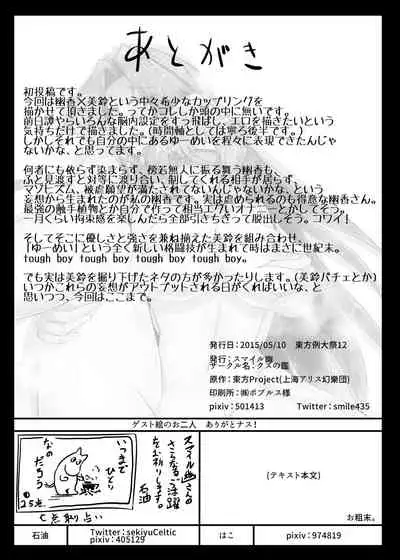 あとがき
初投稿です。
今回は幽香×美鈴という中々希少なカップリングを
描かせて頂きました。ってかコレしか頭の中に無いです。
前日譚やらいろんな脳内設定をすっ飛ばし、エロを描きたいという
気持ちだけで描きました。(時間軸としては寧ろ後半です。)
しかしそれでも自分の中にあるゆーめいを程々に表現できたんじゃ
ないかな、と思ってます。
何者にも依らず染まらず、傍若無人に振る舞う幽香も、
ふと見渡すと対等に渡り合い、制してくれる相手が居らず、
マゾヒズム、被虐願望が満たされてないんじゃないかな、という
妄想から生まれたのが私の幽香です。実は虐められるのも得意な幽香さん。
最強の触手植物とか自分で作って相当エグいオナニーとかしてそう。
一月くらい拘束感を楽しんだら全部引きちぎって脱出しそう。コワイ!
そしてそこに優しさと強さを兼ね揃えた美鈴を組み合わせ、
「ゆーめい」という全く新しい格闘技が生まれて時はまさに世紀末。
tough boy tough boy tough boy tough boy.
でも実は美鈴を掘り下げたネタの方が多かったりします。(美鈴パチェとか)
いつかこれらの妄想がアウトプットされる日がくればいいな、と
思いつつ、今回はここまで。
発行日:2015/05/10 東方例大祭12
発行:スマイル幽
サークル名:クズの鑑
原作:東方Project(上海アリス幻樂団)
印刷所:㈱ポプルス様
pixiv:501413 Twitter:smile435
ゲスト絵のお二人 ありがとナス!
いつまで
ひとり
なの
だろう
スマイル幽さんの
さらなるご活躍
をお祈りします。
石油
(テキスト本文)
お粗末。
石油
Twitter:sekiyuCeltic
pixiv:405129
はこ
pixiv:974819